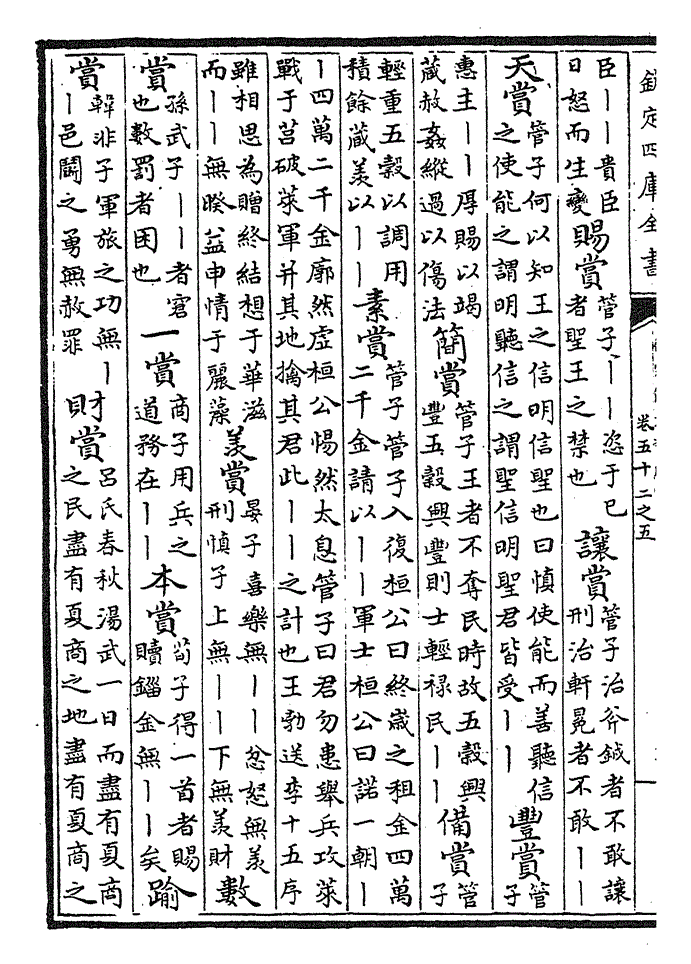 欽定四庫全書
卷五十二之五
臣丨丨貴臣日怒而生變 賜賞 管子丨丨恣于已者聖王之禁也 讓賞 管子治斧鉞者不敢讓刑治軒冕者不敢丨丨
天賞 管子何以知王之信明信聖也曰慎使能而善聽信之使能之謂明聽信之謂聖信明聖君皆受丨丨 豐賞 管子
惠主丨丨厚賜以竭藏赦姦縱過以傷法 簡賞 管子王者不奪民時故五榖興豐五榖興豐則士輕祿民丨丨 備賞 管子
輕重五榖以調用積餘藏羡以丨丨 素賞 管子管子入復桓公曰終歲之租金四萬二千金請以丨丨軍士桓公曰諾一朝丨
丨四萬二千金廓然虛桓公惕然太息管子曰君勿患舉兵攻萊戰于莒破萊軍并其地擒其君此丨丨之計也王勃送李十五序
雖相思為贈終結想于華滋而丨丨無暌益申情于麗藻 羡賞 晏子喜樂無丨丨忿怒無羡刑慎子上無丨丨下無羡財 數
賞 孫武子丨丨者窘也數罰者困也 一賞 商子用兵之道務在丨丨 本賞 荀子得一首者賜贖錙金無丨丨矣 踰
賞 韓非子軍旅之功無丨丨邑鬪之勇無赦罪 財賞 呂氏春秋湯武一日而盡有夏商之民盡有夏商之地盡有夏商之